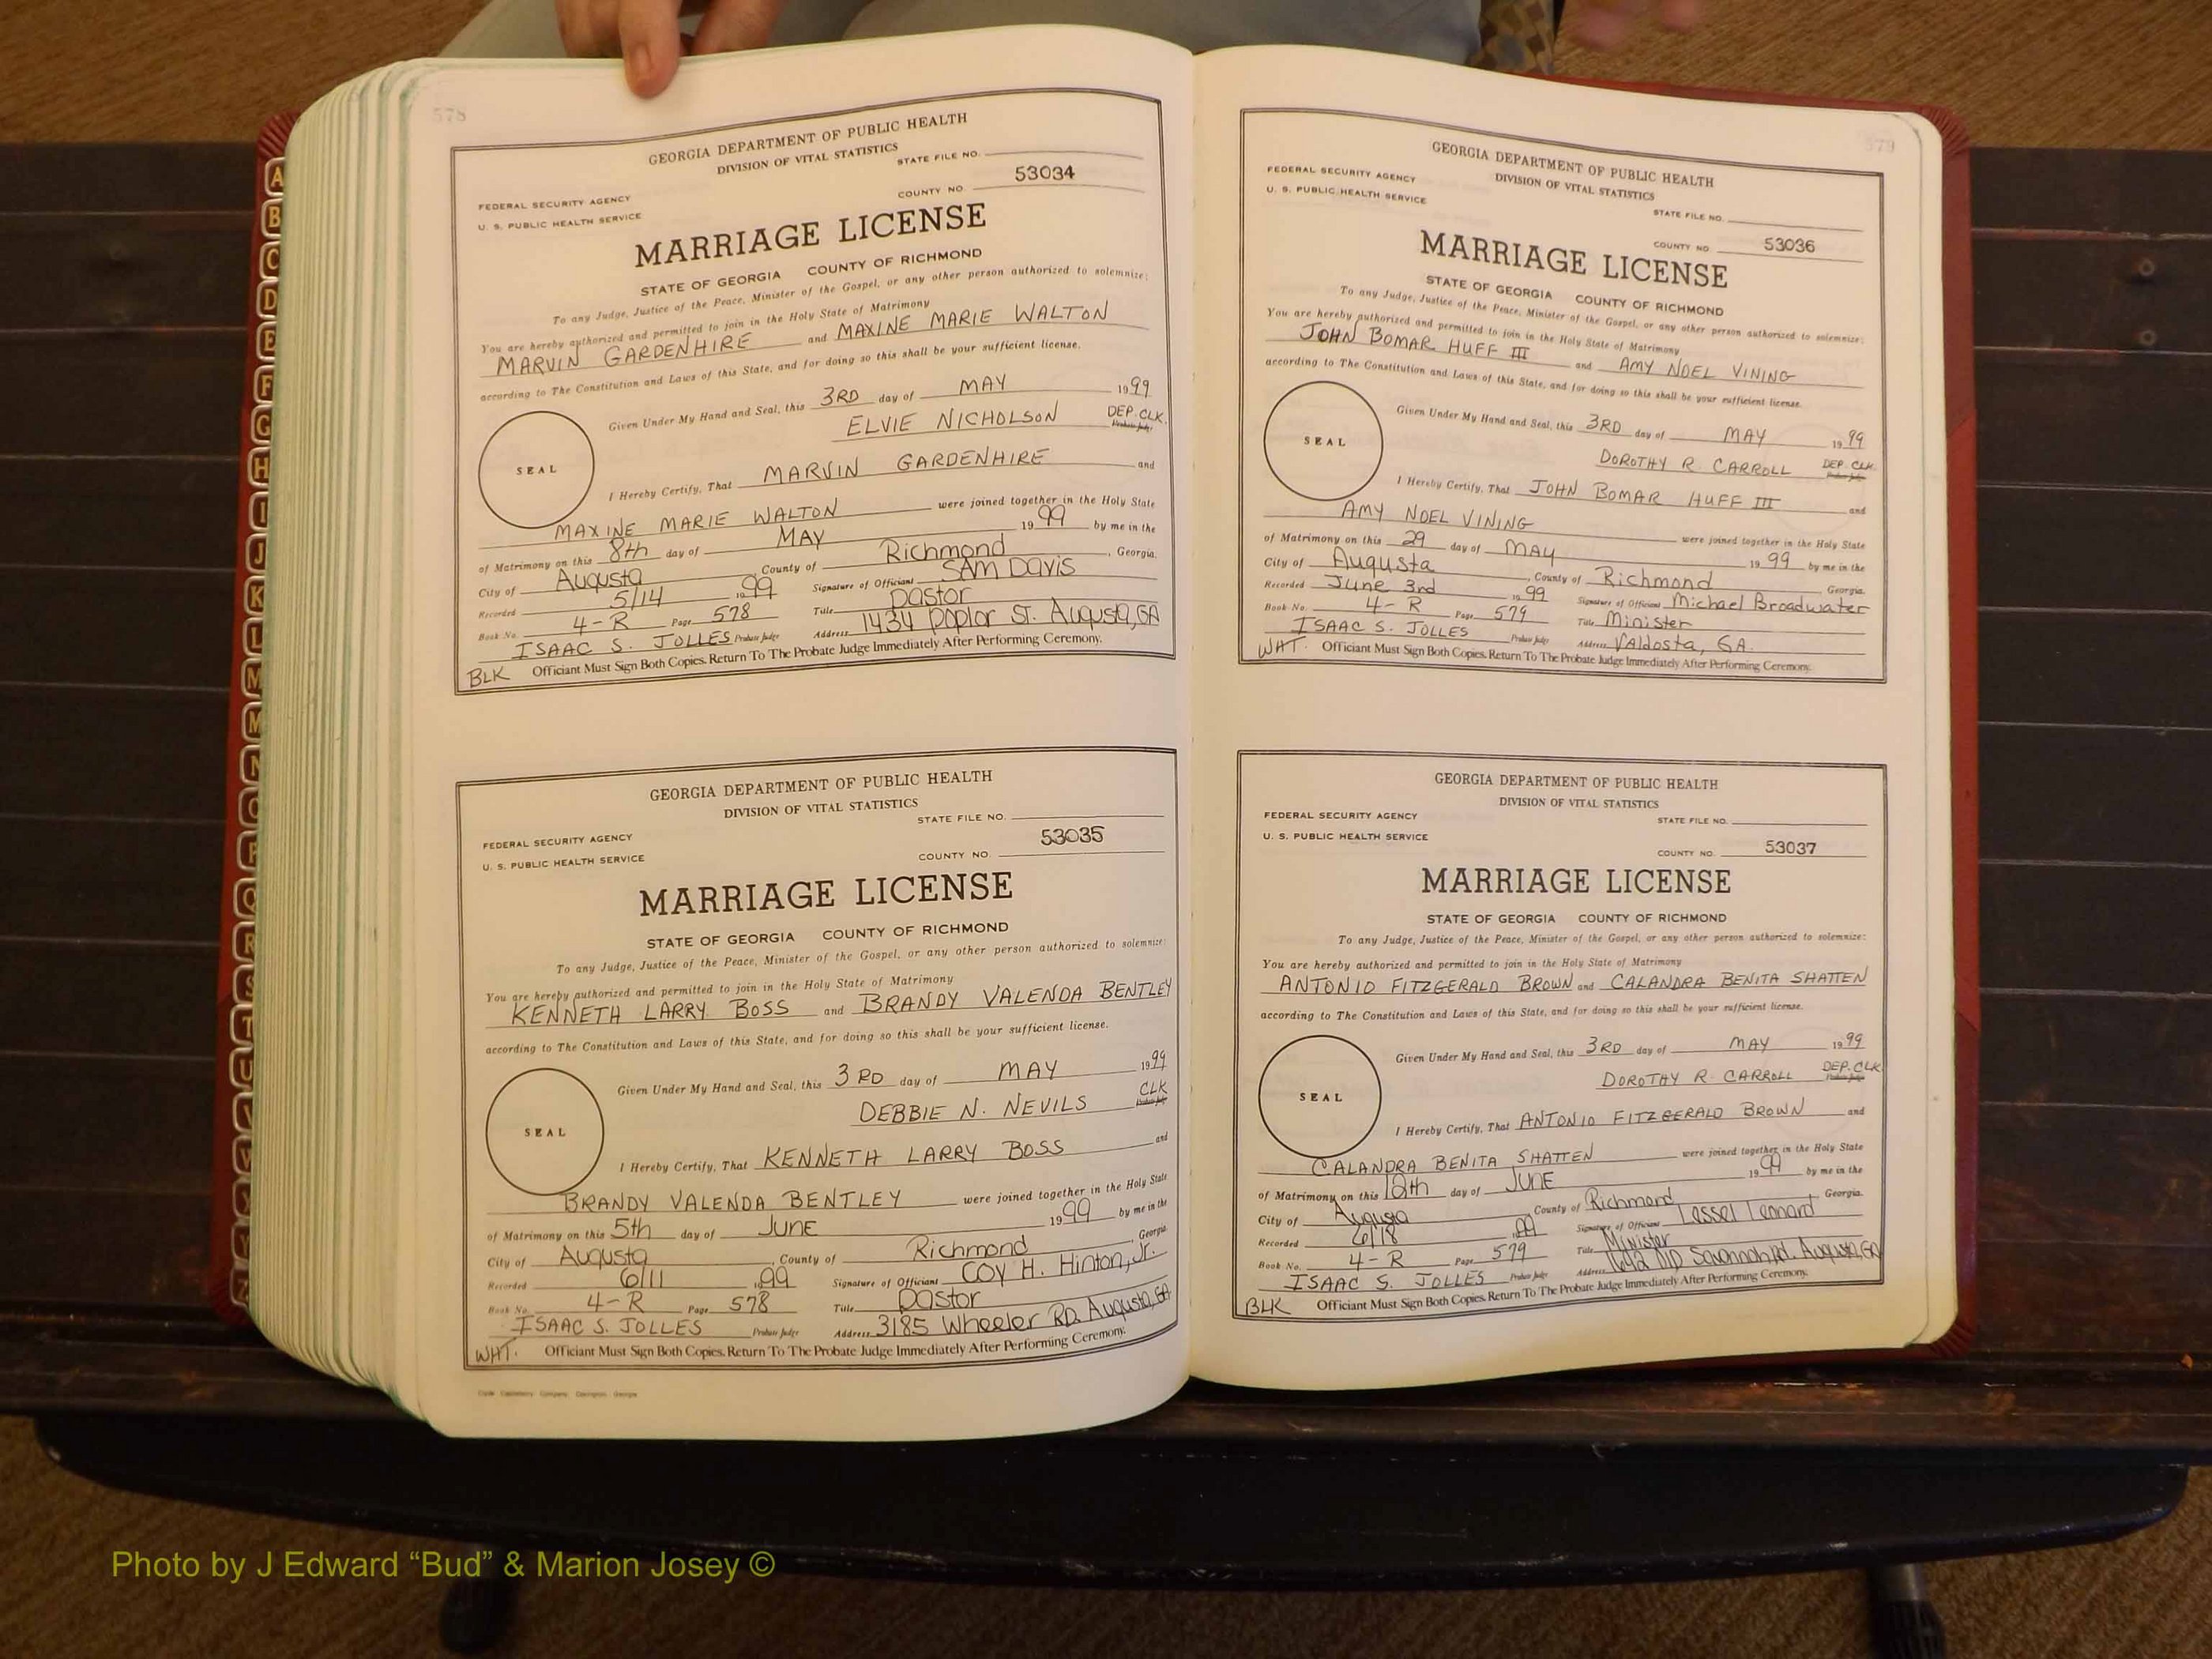 578
GEORGIA DEPARTMENT OF PUBLIC HEALTH
DIVISION OF VITAL STATISTICS
STATE FILE NO.
FEDERAL SECURITY AGENCY
COUNTY NO. 53034
U. S. PUBLIC HEALTH SERVICE
MARRIAGE LICENSE
STATE OF GEORGIA COUNTY OF RICHMOND
To any Judge, Justice of the Peace, Minister of the Gospel, or any other person authorized to solemnize:
You are hereby authorized and permitted to join in the Holy State of Matrimony
MARVIN GARDENHIRE and MAXINE MARIE WALTON
according to The Constitution and Laws of this State, and for doing so this shall be your sufficient license.
Given Under My Hand and Seal, this 3RD day of MAY 1999
ELVIE NICHOLSON DEP. CLK. Probate Judge
SEAL
I Hereby Certify, That MARVIN GARDENHIRE and
MAXINE MARIE WALTON were joined together in the Holy State
of Matrimony on this 8th day of MAY 1999 by me in the
City of Augusta, County of Richmond, Georgia.
Recorded 5/14 1999 Signature of Officiant SAM DAVIS
Book No. 4-R Page 578 Title Pastor
ISAAC S. JOLLES Probate Judge Address 1434 Poplar St. Augusta, GA
BLK Officiant Must Sign Both Copies. Return To The Probate Judge Immediately After Performing Ceremony.
GEORGIA DEPARTMENT OF PUBLIC HEALTH
DIVISION OF VITAL STATISTICS
STATE FILE NO.
FEDERAL SECURITY AGENCY
COUNTY NO. 53035
U. S. PUBLIC HEALTH SERVICE
MARRIAGE LICENSE
STATE OF GEORGIA COUNTY OF RICHMOND
To any Judge, Justice of the Peace, Minister of the Gospel, or any other person authorized to solemnize:
You are hereby authorized and permitted to join in the Holy State of Matrimony
KENNETH LARRY BOSS and BRANDY VALENDA BENTLEY
according to The Constitution and Laws of this State, and for doing so this shall be your sufficient license.
Given Under My Hand and Seal, this 3RD day of MAY 1999
DEBBIE N. NEVILS CLK Probate Judge
SEAL
I Hereby Certify, That KENNETH LARRY BOSS and
BRANDY VALENDA BENTLEY were joined together in the Holy State
of Matrimony on this 5th day of June 1999 by me in the
City of Augusta, County of Richmond, Georgia.
Recorded 6/11 1999 Signature of Officiant COY H. Hinton, Jr.
Book No. 4-R Page 578 Title Pastor
ISAAC S. JOLLES Probate Judge Address 3185 Wheeler RD. Augusta, GA
WHT. Officiant Must Sign Both Copies. Return To The Probate Judge Immediately After Performing Ceremony.
579
GEORGIA DEPARTMENT OF PUBLIC HEALTH
DIVISION OF VITAL STATISTICS
FEDERAL SECURITY AGENCY
U. S. PUBLIC HEALTH SERVICE
STATE FILE NO.
COUNTY NO 53036
MARRIAGE LICENSE
STATE OF GEORGIA COUNTY OF RICHMOND
To any Judge, Justice of the Peace, Minister of the Gospel, or any other person authorized to solemnize:
You are hereby authorized and permitted to join in the Holy State of Matrimony
JOHN BOMAR HUFF III and AMY NOEL VINING
according to The Constitution and Laws of this State, and for doing so this shall be your sufficient license.
Given Under My Hand and Seal, this 3RD day of MAY 1999
DOROTHY R. CARROLL DEP. CLK. Probate Judge
SEAL
I Hereby Certify, That JOHN BOMAR HUFF III and
AMY NOEL VINING were joined together in the Holy State
of Matrimony on this 29 day of MAY 1999 by me in the
City of Augusta, County of Richmond Georgia.
Recorded June 3rd 1999 Signature of Officiant Michael Broadwater
Book No. 4-R Page 579 Title Minister
ISAAC S. JOLLES Probate Judge Address Valdosta, GA.
WHT. Officiant Must Sign Both Copies. Return To The Probate Judge Immediately After Performing Ceremony.
GEORGIA DEPARTMENT OF PUBLIC HEALTH
DIVISION OF VITAL STATISTICS
FEDERAL SECURITY AGENCY
STATE FILE NO.
U. S. PUBLIC HEALTH SERVICE
COUNTY NO. 53037
MARRIAGE LICENSE
STATE OF GEORGIA COUNTY OF RICHMOND
To any Judge, Justice of the Peace, Minister of the Gospel, or any other person authorized to solemnize:
You are hereby authorized and permitted to join in the Holy State of Matrimony
ANTONIO FITZGERALD BROWN and CALANDRA BENITA SHATTEN
according to The Constitution and Laws of this State, and for doing so this shall be your sufficient license.
Given Under My Hand and Seal, this 3RD day of MAY 1999
DOROTHY R. CARROLL DEP. CLK. Probate Judge
SEAL
I Hereby Certify, That ANTONIO FITZGERALD BROWN and
CALANDRA BENITA SHATTEN were joined together in the Holy State
of Matrimony on this 12th day of JUNE 1999 by me in the
City of Augusta, County of Richmond Georgia.
Recorded 6/18 1999 Signature of Officiant Lessel Leonard
Book No. 4-R Page 579 Title Minister
ISAAC S. JOLLES Probate Judge Address 1642 Old Savannah Rd. Augusta, GA
BLK Officiant Must Sign Both Copies. Return To The Probate Judge Immediately After Performing Ceremony.
A
B
C
D
E
F
G
H
I
J
K
L
M
M
N
O
P
Q
R
S
T
U
V
Photo by J Edward “Bud” & Marion Josey ©